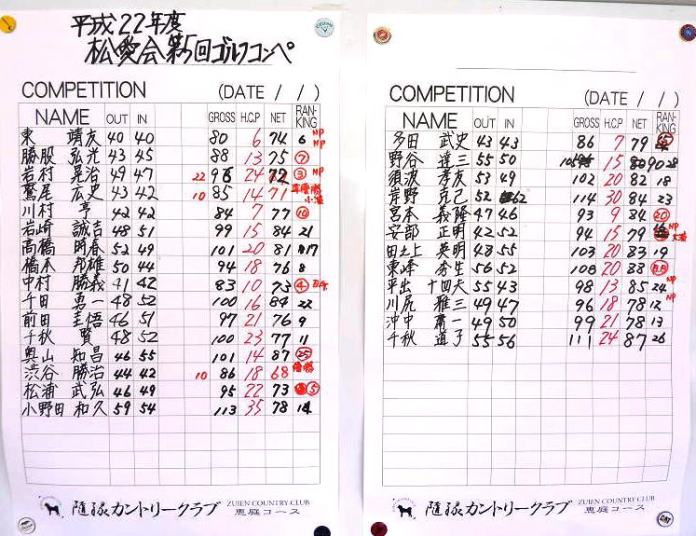 平成22年度
松愛会第5回ゴルフコンペ
COMPETITION (DATE / / )
NAME OUT IN GROSS H.C.P NET RANKING
東 靖友 40 40 80 6 74 6 NP NP
勝股 弘光 43 45 88 13 75 7
岩村 晃治 49 47 22 96 24 72 3 NP
鷲尾 広史 43 42 10 85 14 71 準優勝
川村 亨 42 42 84 7 77 10
岩崎 誠吉 48 51 99 15 84 21
高橋 明春 52 49 101 20 81 17
橋本 邦雄 50 44 94 18 76 8
中村 勝義 41 42 83 10 73 4
千田 勇一 48 52 100 16 84 22
前田 圭悟 46 51 97 21 76 9
千秋 賢 48 52 100 23 77 11
奥山 知昌 46 55 101 14 87 25
渋谷 勝治 44 42 10 86 18 68 優勝
松浦 武弘 46 49 95 22 73 5
小野田 和久 59 54 113 35 78 14
随縁カントリークラブ ZUIEN COUNTRY CLUB
恵庭コース
COMPETITION (DATE / / )
NAME OUT IN GROSS H.C.P NET RANKING
多田 武史 43 43 86 7 79 15
野谷 達三 55 50 105 15 90 28
須波 孝友 53 49 102 20 82 18
岸野 克己 52 62 114 30 84 23
宮本 義隆 47 46 93 9 84 20
安部 正明 42 52 94 15 79 NP
田之上 英明 48 55 103 20 83 19
東峰 秀生 56 52 108 20 88
平出 十四夫 55 43 98 13 85 24 NP
川尻 雅三 49 47 96 18 78 12 NP
沖中 庸一 49 50 99 21 78 13
千秋 道子 55 56 111 24 87 26
随縁カントリークラブ ZUIEN COUNTRY CLUB
恵庭コース